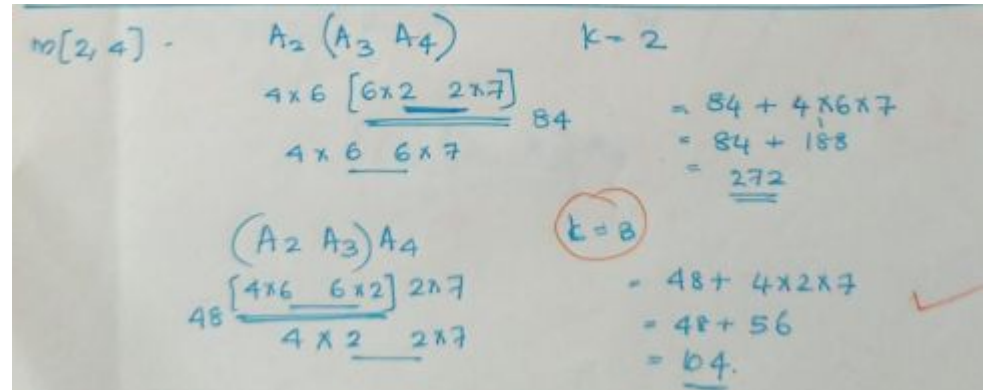 m[2, 4] - A2 (A3 A4) k - 2
4 x 6 [6x2 2x7] 84
4 x 6 6 x 7
= 84 + 4x6x7
= 84 + 188
= 272
(A2 A3) A4 k = 3
48 [4x6 6x2] 2x7
4 x 2 2x7
= 48 + 4x2x7
= 48 + 56
= 104.